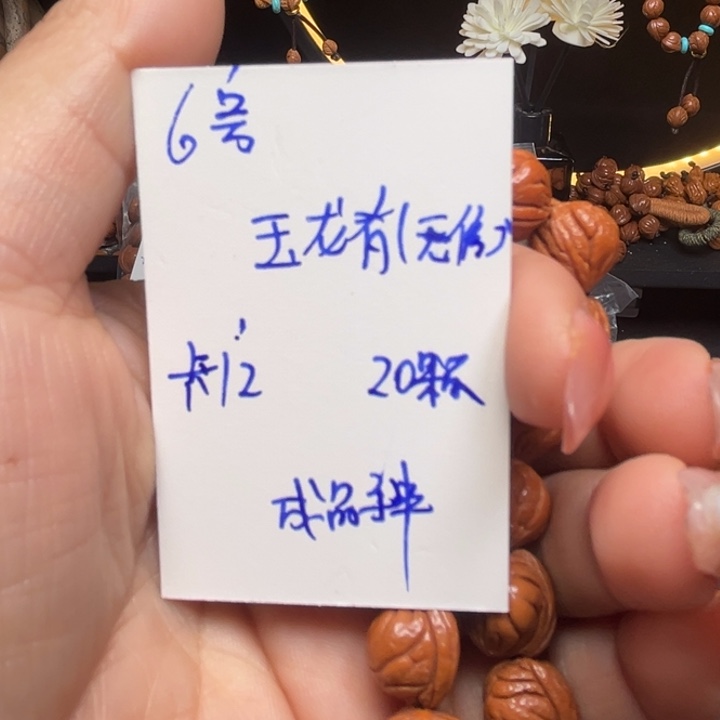 6号
玉龙(无修)
卡12 20颗
成品手串